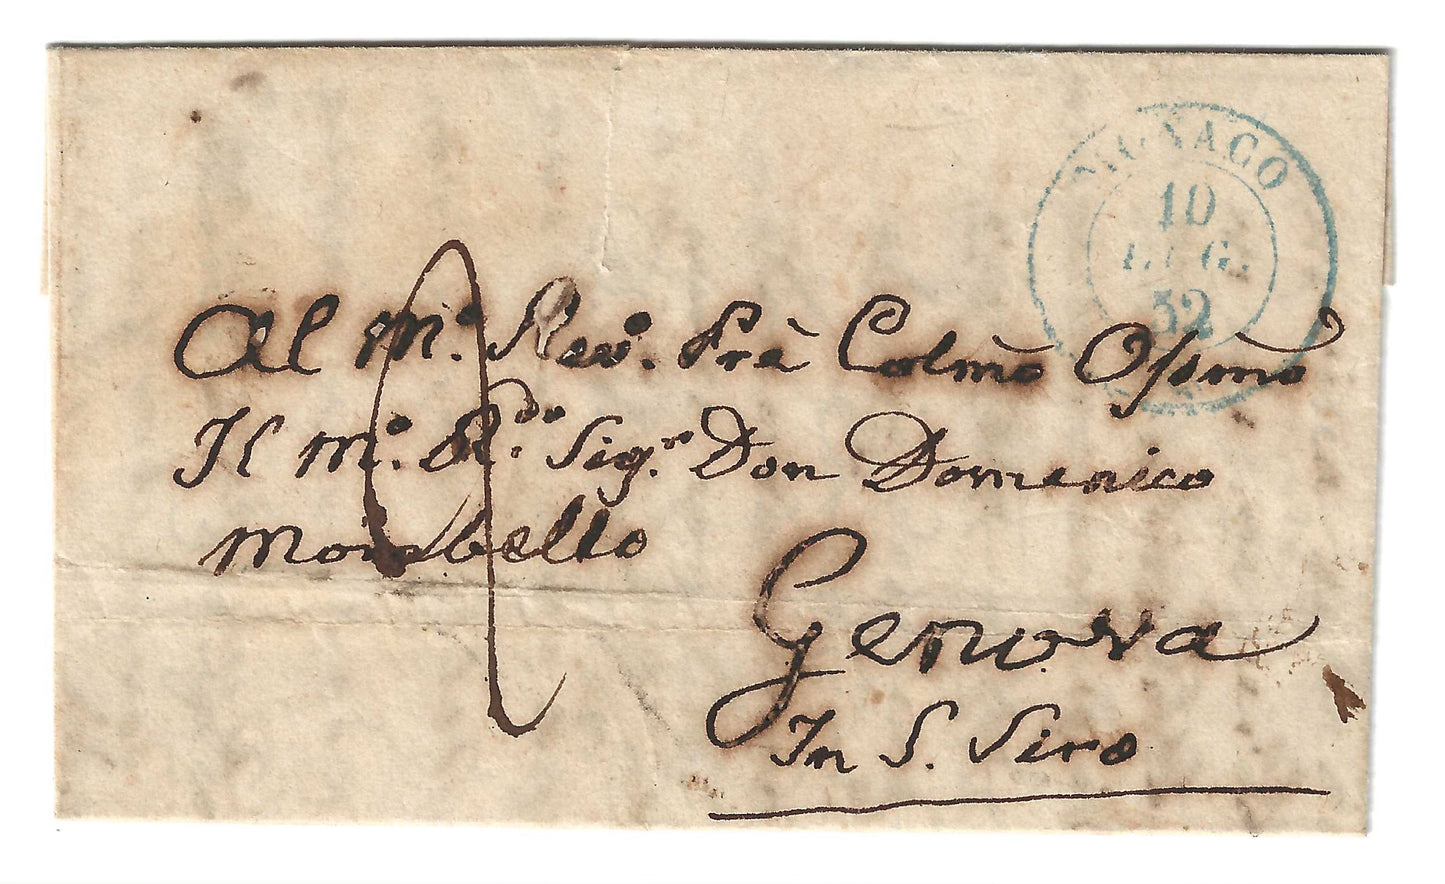 MONACO
10
LUG.
52
Al M.º Rev.º Frà Colmo Ospmo
Il M.º R.do Sig.re Don Domenico
Mombello
Genova
In S. Siro